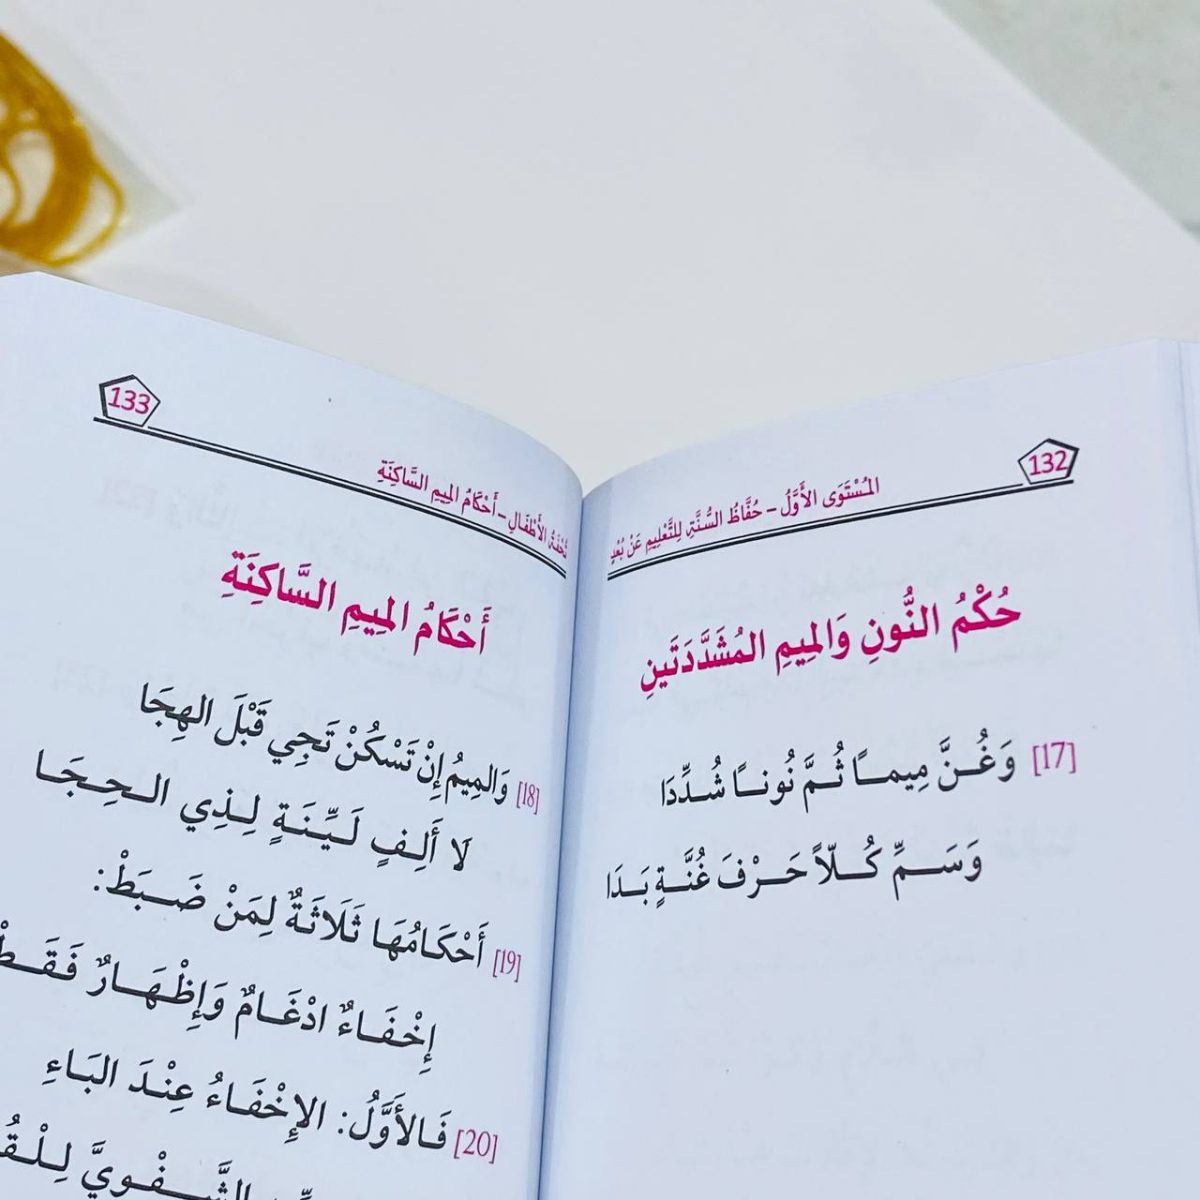 132
المُسْتَوَى الأَوَّلُ - حُفَّاظُ السُّنَّةِ لِلتَّعْلِيمِ عَنْ بُعْدٍ
حُكْمُ النُّونِ وَالمِيمِ المُشَدَّدَتَينِ
[17] وَغُـنَّ مِيمـاً ثُـمَّ نُونـاً شُـدِّدَا
وَسَـمِّ كُـلّاً حَـرْفَ غُنَّـةٍ بَـدَا
133
تُحْفَةُ الأَطْفَالِ - أَحْكَامُ المِيمِ السَّاكِنَةِ
أَحْكَامُ المِيمِ السَّاكِنَةِ
[18] وَالمِيمُ إِنْ تَسْكُنْ تَجِي قَبْلَ الهِجَا
لَا أَلِـفٍ لَـيِّـنَـةٍ لِـذِي الـحِـجَـا
[19] أَحْكَـامُهَا ثَلَاثَةٌ لِمَنْ ضَـبَطْ:
إِخْفَـاءٌ ادْغَـامٌ وَإِظْهَـارٌ فَقَـطْ
[20] فَـالأَوَّلُ: الإِخْفَـاءُ عِنْـدَ البَـاءِ
الشَّـفْـوِيَّ